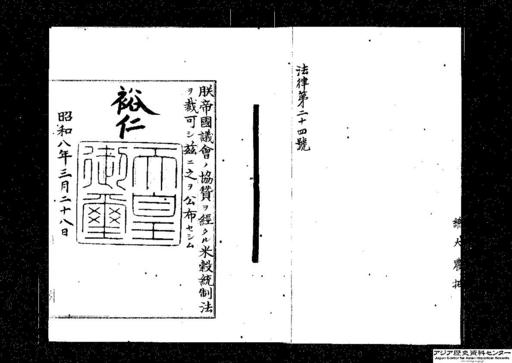 法律第二十四號
朕帝國議會ノ協賛ヲ經タル米穀統制法
ヲ裁可シ茲ニ之ヲ公布セシム
裕仁
天皇御璽
昭和八年三月二十八日
アジア歴史資料センター
Japan Center for Asian Historical Records